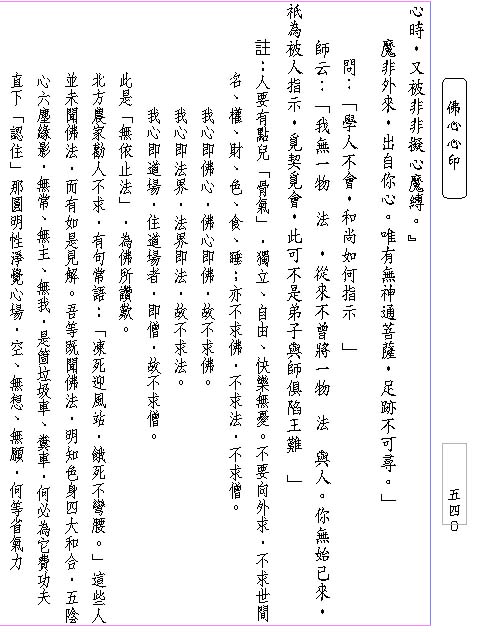 佛心心印
五四〇
心時，又被非非擬心魔縛。』
魔非外來，出自你心。唯有無神通菩薩，足跡不可尋。」
問：「學人不會，和尚如何指示　」
師云：「我無一物　法　，從來不曾將一物　法　與人。你無始已來，
祇為被人指示，覓契覓會，此可不是弟子與師俱陷王難　」
註：人要有點兒「骨氣」，獨立、自由、快樂無憂。不要向外求，不求世間
名、權、財、色、食、睡；亦不求佛，不求法，不求僧。
我心即佛心，佛心即佛，故不求佛。
我心即法界，法界即法，故不求法。
我心即道場，住道場者，即僧，故不求僧。
此是「無依止法」，為佛所讚歎。
北方農家勸人不求，有句常語：「凍死迎風站，餓死不彎腰。」這些人
並未聞佛法，而有如是見解。吾等既聞佛法，明知色身四大和合，五陰
心六塵緣影，無常、無主、無我，是箇垃圾車、糞車，何必為它費功夫
直下「認住」那圓明性淨覺心場，空、無想、無願，何等省氣力